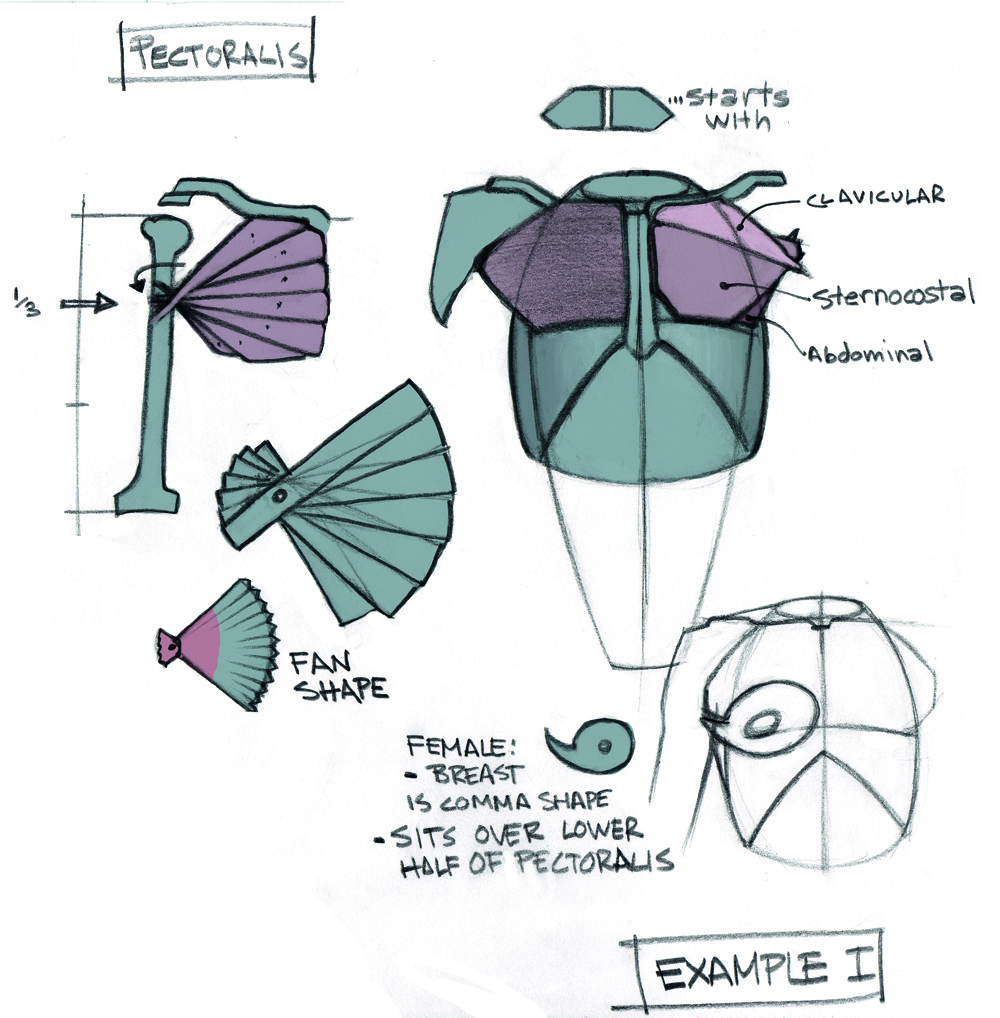 PECTORALIS
...starts
with
CLAVICULAR
1/3
Sternocostal
Abdominal
FAN
SHAPE
FEMALE:
- BREAST
IS COMMA SHAPE
- SITS OVER LOWER
HALF OF PECTORALIS
EXAMPLE I